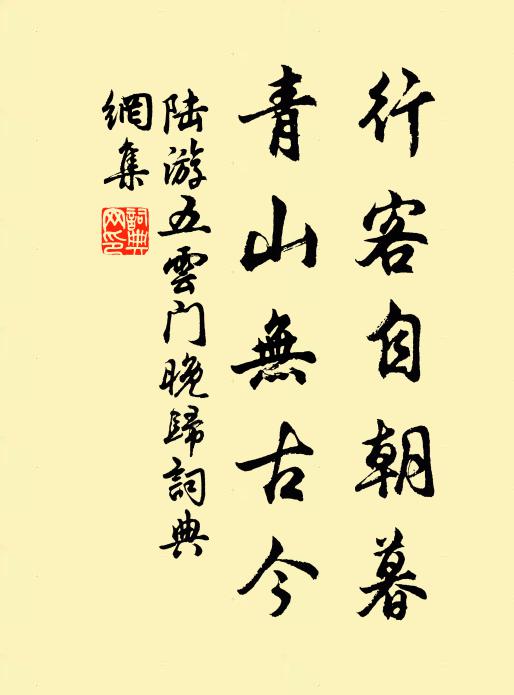 行客自朝暮
青山無古今
陆游五雲门晚歸詞典
網集
詞典
网印